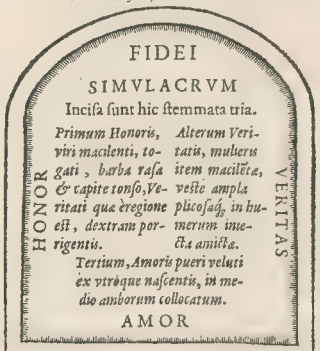 FIDEI
SIMVLACRVM
Inciſa ſunt hic ſtemmata tria.
Primum Honoris,
viri macilenti, to-
gati, barba raſa
& capite tonſo, Ve-
ritati quæ èregione
eſt, dextram por-
rigentis.
Alterum Veri-
tatis, mulieris
item macilẽtæ,
veſte ampla
plicoſaq́; in hu-
merum inie-
cta amictæ.
Tertium, Amoris pueri veluti
èx vtroque naſcentis, in me-
dio amborum collocatum.
HONOR
VERITAS
AMOR